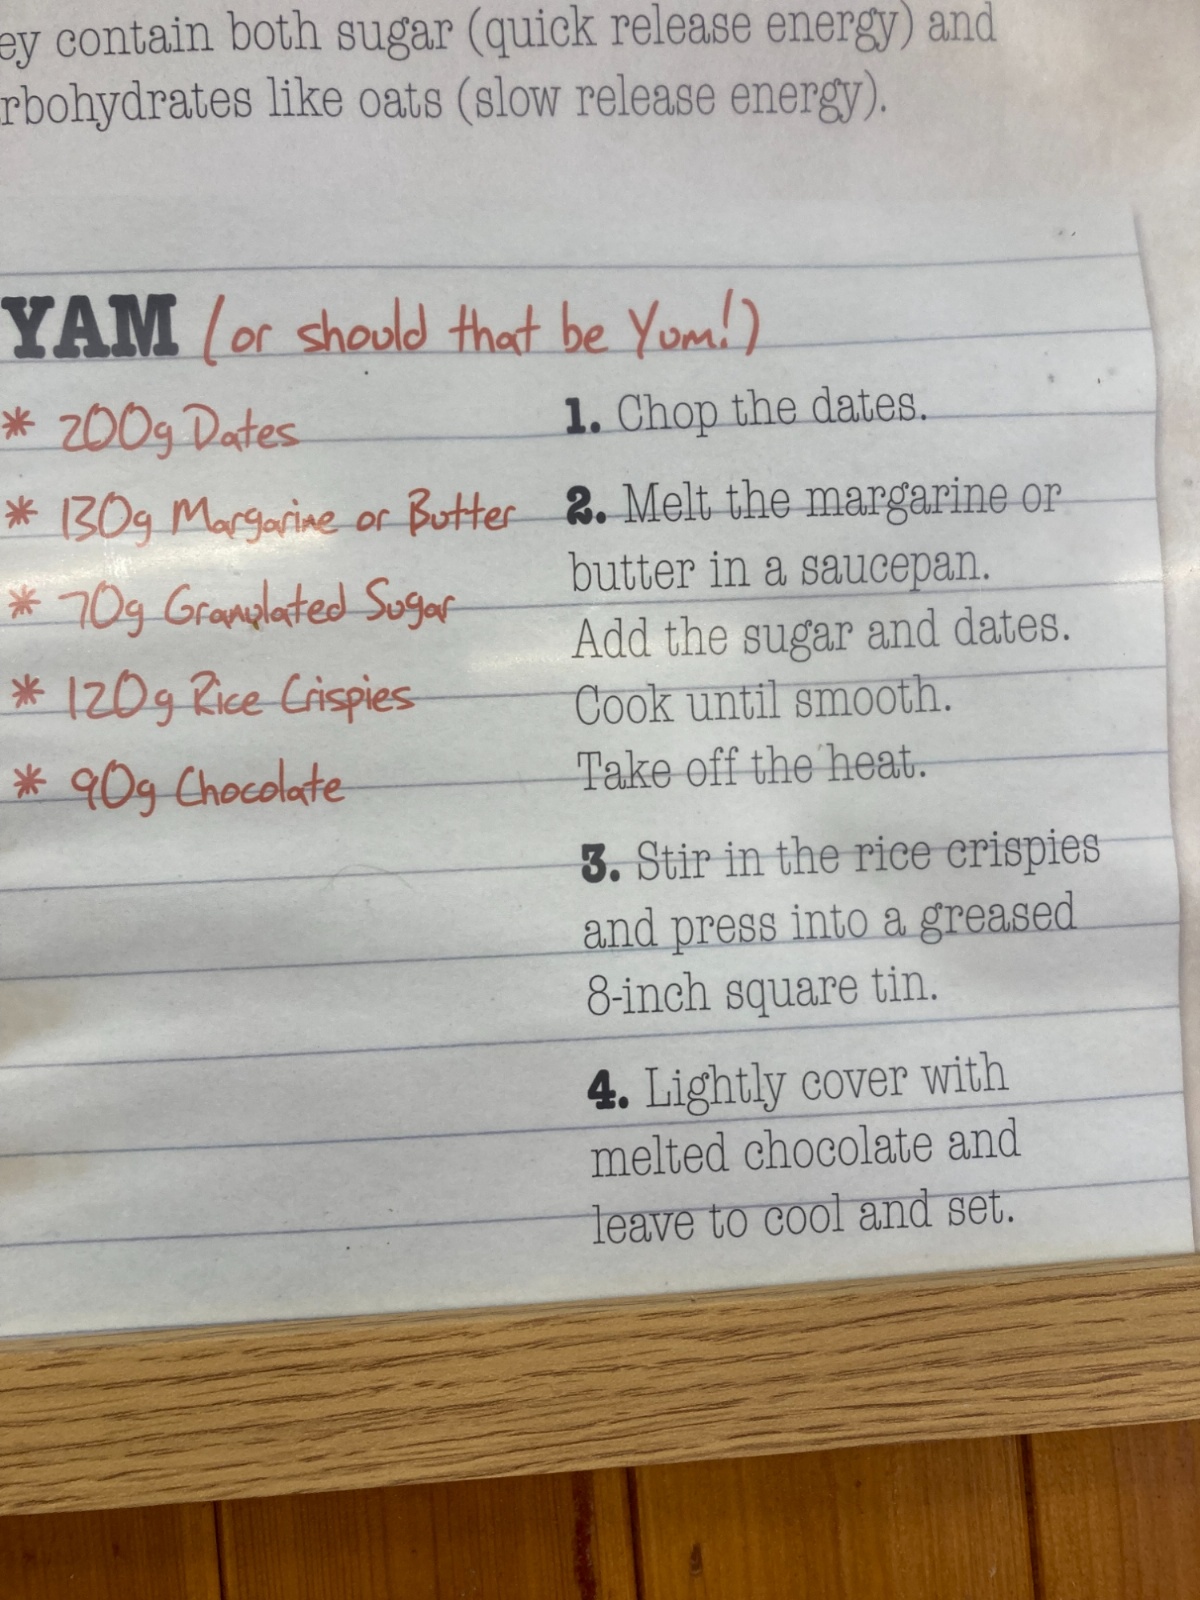 ey contain both sugar (quick release energy) and
rbohydrates like oats (slow release energy).
YAM (or should that be Yum!)
* 200g Dates
* 130g Margarine or Butter
* 70g Granulated Sugar
* 120g Rice Crispies
* 90g Chocolate
1. Chop the dates.
2. Melt the margarine or
butter in a saucepan.
Add the sugar and dates.
Cook until smooth.
Take off the heat.
3. Stir in the rice crispies
and press into a greased
8-inch square tin.
4. Lightly cover with
melted chocolate and
leave to cool and set.